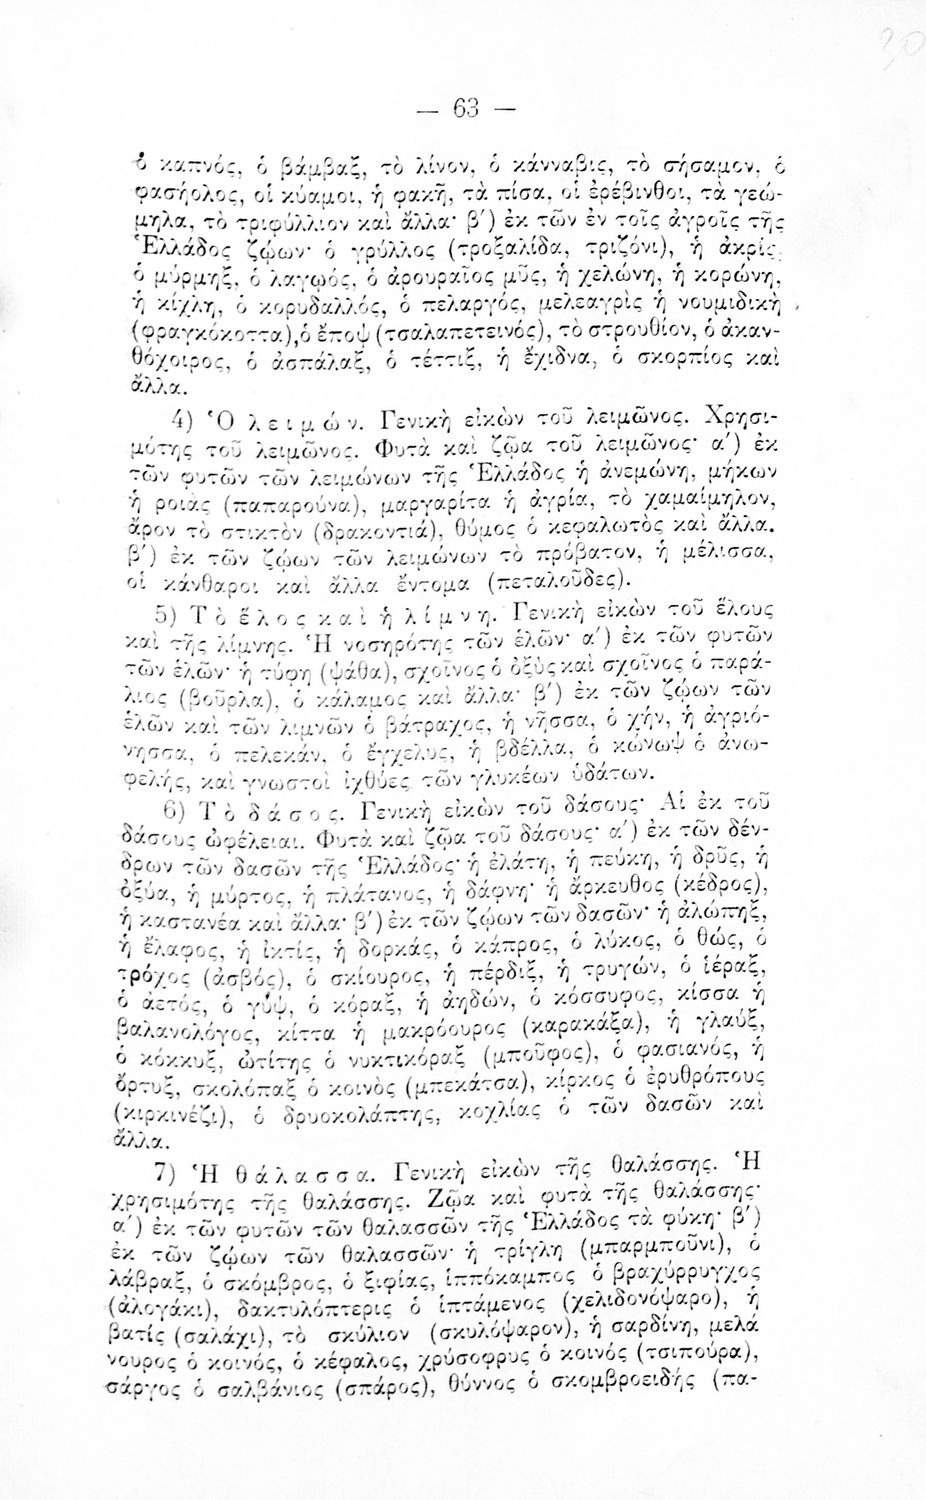 30
— 63 —
ὁ καπνός, ὁ βάμβαξ, τὸ λίνον, ὁ κάνναβις, τὸ σήσαμον, ὁ
φασήολος, οἱ κύαμοι, ἡ φακῆ, τὰ πίσα, οἱ ἐρέβινθοι, τὰ γεώ-
μηλα, τὸ τριφύλλιον καὶ ἄλλα· β′) ἐκ τῶν ἐν τοῖς ἀγροῖς τῆς
Ἑλλάδος ζῴων· ὁ γρύλλος (τροξαλίδα, τριζόνι), ἡ ἀκρίς,
ὁ μύρμηξ, ὁ λαγωός, ὁ ἀρουραῖος μῦς, ἡ χελώνη, ἡ κορώνη,
ἡ κίχλη, ὁ κορυδαλλός, ὁ πελαργός, μελεαγρὶς ἡ νουμιδικὴ
(φραγκόκοττα), ὁ ἔποψ (τσαλαπετεινός), τὸ στρουθίον, ὁ ἀκαν-
θόχοιρος, ὁ ἀσπάλαξ, ὁ τέττιξ, ἡ ἔχιδνα, ὁ σκορπίος καὶ
ἄλλα.
4) Ὁ λειμών. Γενικὴ εἰκὼν τοῦ λειμῶνος. Χρησι-
μότης τοῦ λειμῶνος. Φυτὰ καὶ ζῷα τοῦ λειμῶνος· α′) ἐκ
τῶν φυτῶν τῶν λειμώνων τῆς Ἑλλάδος ἡ ἀνεμώνη, μήκων
ἡ ροιὰς (παπαρούνα), μαργαρίτα ἡ ἀγρία, τὸ χαμαίμηλον,
ἄρον τὸ στικτὸν (δρακοντιά), θύμος ὁ κεφαλωτὸς καὶ ἄλλα.
β′) ἐκ τῶν ζῴων τῶν λειμώνων τὸ πρόβατον, ἡ μέλισσα,
οἱ κάνθαροι καὶ ἄλλα ἔντομα (πεταλοῦδες).
5) Τὸ ἕλος καὶ ἡ λίμνη. Γενικὴ εἰκὼν τοῦ ἕλους
καὶ τῆς λίμνης. Ἡ νοσηρότης τῶν ἑλῶν· α′) ἐκ τῶν φυτῶν
τῶν ἑλῶν· ἡ τύφη (ψάθα), σχοῖνος ὁ ὀξὺς καὶ σχοῖνος ὁ παρά-
λιος (βοῦρλα), ὁ κάλαμος καὶ ἄλλα· β′) ἐκ τῶν ζῴων τῶν
ἑλῶν καὶ τῶν λιμνῶν ὁ βάτραχος, ἡ νῆσσα, ὁ χήν, ἡ ἀγριό-
νησσα, ὁ πελεκάν, ὁ ἔγχελυς, ἡ βδέλλα, ὁ κώνωψ ὁ ἀνω-
φελής, καὶ γνωστοὶ ἰχθύες τῶν γλυκέων ὑδάτων.
6) Τὸ δάσος. Γενικὴ εἰκὼν τοῦ δάσους· Αἱ ἐκ τοῦ
δάσους ὠφέλειαι. Φυτὰ καὶ ζῷα τοῦ δάσους· α′) ἐκ τῶν δέν-
δρων τῶν δασῶν τῆς Ἑλλάδος· ἡ ἐλάτη, ἡ πεύκη, ἡ δρῦς, ἡ
ὀξύα, ἡ μύρτος, ἡ πλάτανος, ἡ δάφνη· ἡ ἄρκευθος (κέδρος),
ἡ καστανέα καὶ ἄλλα· β′) ἐκ τῶν ζῴων τῶν δασῶν· ἡ ἀλώπηξ,
ἡ ἔλαφος, ἡ ἰκτίς, ἡ δορκάς, ὁ κάπρος, ὁ λύκος, ὁ θώς, ὁ
τρόχος (ἀσβός), ὁ σκίουρος, ἡ πέρδιξ, ἡ τρυγών, ὁ ἱέραξ,
ὁ ἀετός, ὁ γύψ, ὁ κόραξ, ἡ ἀηδών, ὁ κόσσυφος, κίσσα ἡ
βαλανολόγος, κίττα ἡ μακρόουρος (καρακάξα), ἡ γλαύξ,
ὁ κόκκυξ, ὠτίτης ὁ νυκτικόραξ (μποῦφος), ὁ φασιανός, ἡ
ὄρτυξ, σκολόπαξ ὁ κοινὸς (μπεκάτσα), κίρκος ὁ ἐρυθρόπους
(κιρκινέζι), ὁ δρυοκολάπτης, κοχλίας ὁ τῶν δασῶν καὶ
ἄλλα.
7) Ἡ θάλασσα. Γενικὴ εἰκὼν τῆς θαλάσσης. Ἡ
χρησιμότης τῆς θαλάσσης. Ζῷα καὶ φυτὰ τῆς θαλάσσης·
α′) ἐκ τῶν φυτῶν τῶν θαλασσῶν τῆς Ἑλλάδος τὰ φύκη· β′)
ἐκ τῶν ζῴων τῶν θαλασσῶν· ἡ τρίγλη (μπαρμποῦνι), ὁ
λάβραξ, ὁ σκόμβρος, ὁ ξιφίας, ἱππόκαμπος ὁ βραχύρρυγχος
(ἀλογάκι), δακτυλόπτερις ὁ ἱπτάμενος (χελιδονόψαρο), ἡ
βατίς (σαλάχι), τὸ σκύλιον (σκυλόψαρον), ἡ σαρδίνη, μελά
νουρος ὁ κοινός, ὁ κέφαλος, χρύσοφρυς ὁ κοινός (τσιπούρα),
σάργος ὁ σαλβάνιος (σπάρος), θύννος ὁ σκομβροειδής (πα-